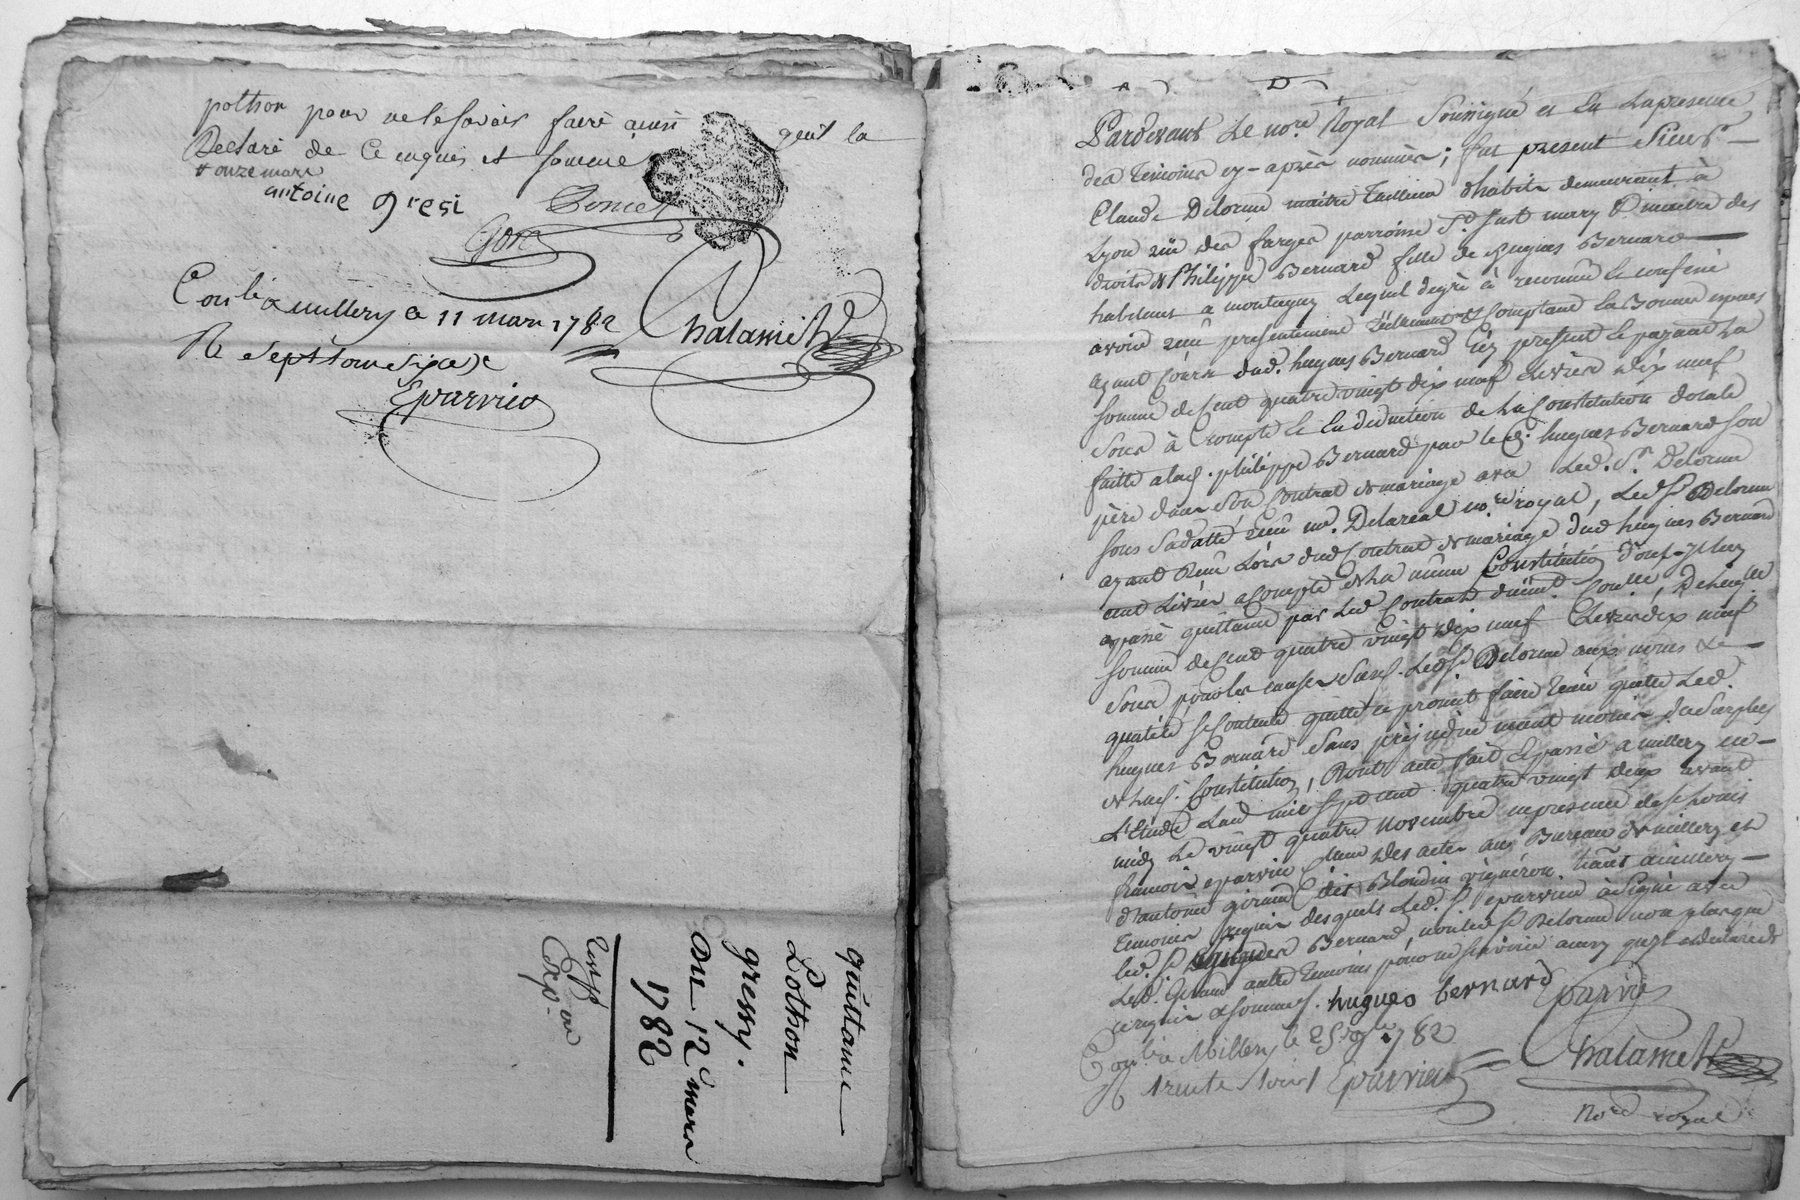 pothon pour ne le savoir faire ainsi quil la
Declaré de Ce enquis et sommé
+ onze mars
antoine gresi Poncet
Gon
Conlé a millery le 11 mars 1782
R Sept sous six dr
Chalamel
Eparvier
quittance
Pothon
gressy.
Du 12e mars
1782
exp.
A D
Pardevant Le nore Royal Soussigné et En Lapresence
des temoins cy-après nommés; fut present Sieur
Claude Delorme maitre Tailleur d'habits demeurant à
Lyon rüe des farges parroisse St. Just mary & maitre des
droits de Philippe Bernard fille de hugues Bernard
habitant a montagny Lequel degré à reconnu le confessé
avoir reçu presentement réellement & Comptant En Bonnes especes
ayant Cours dud. hugues Bernard Icy present le payant La
somme de Cent quatre vingt dix neuf Livres dix neuf
Sous à Compte Et En deduction de La Constitution dotale
faitte alad. philippe Bernard par led. hugues Bernard son
père dans son Contrat de mariage avec Led. Sr. Delorme
sous sadatte, reçu me. Delareal nore royal, Led Sr Delorme
ayant Reçu Lors dud Contrat de mariage dud hugues Bernard
cent Livres acompte de La même Constitution
passé quittance par Led Contrat Laquelle
somme de Cent quatre vingt dix neuf Livres dix neuf
Sous pour les causes Susd. Led Sr Delorme aux noms &
qualité se Contente quitte et promet faire tenir quitte Led.
hugues Bernard Sans préjudice neant moins du Surplus
de Lad. Constitution, Dont acte fait Et passé a millery en
L'Etude Lan mil sept cent quatre vingt deux avant
midy Le vingt quatre Novembre en presence de Sr Louis
francois eparvier Commis des actes au Bureau de millery et
d'antoine giraud dit Blondin vigneron habts a millery
temoins requis desquels Led. Sr eparvier à Signé avec
led. Sr hugues Bernard, non led Sr Delorme non plus que
Led. Giraud autre temoins pour ne savoir ainsy quils ont declaré de
ce requis & sommés. hugues bernard Eparvier
Conlé a Millery le 25 9bre 1782
R trente sous Eparvier
Chalamel
Nore royal